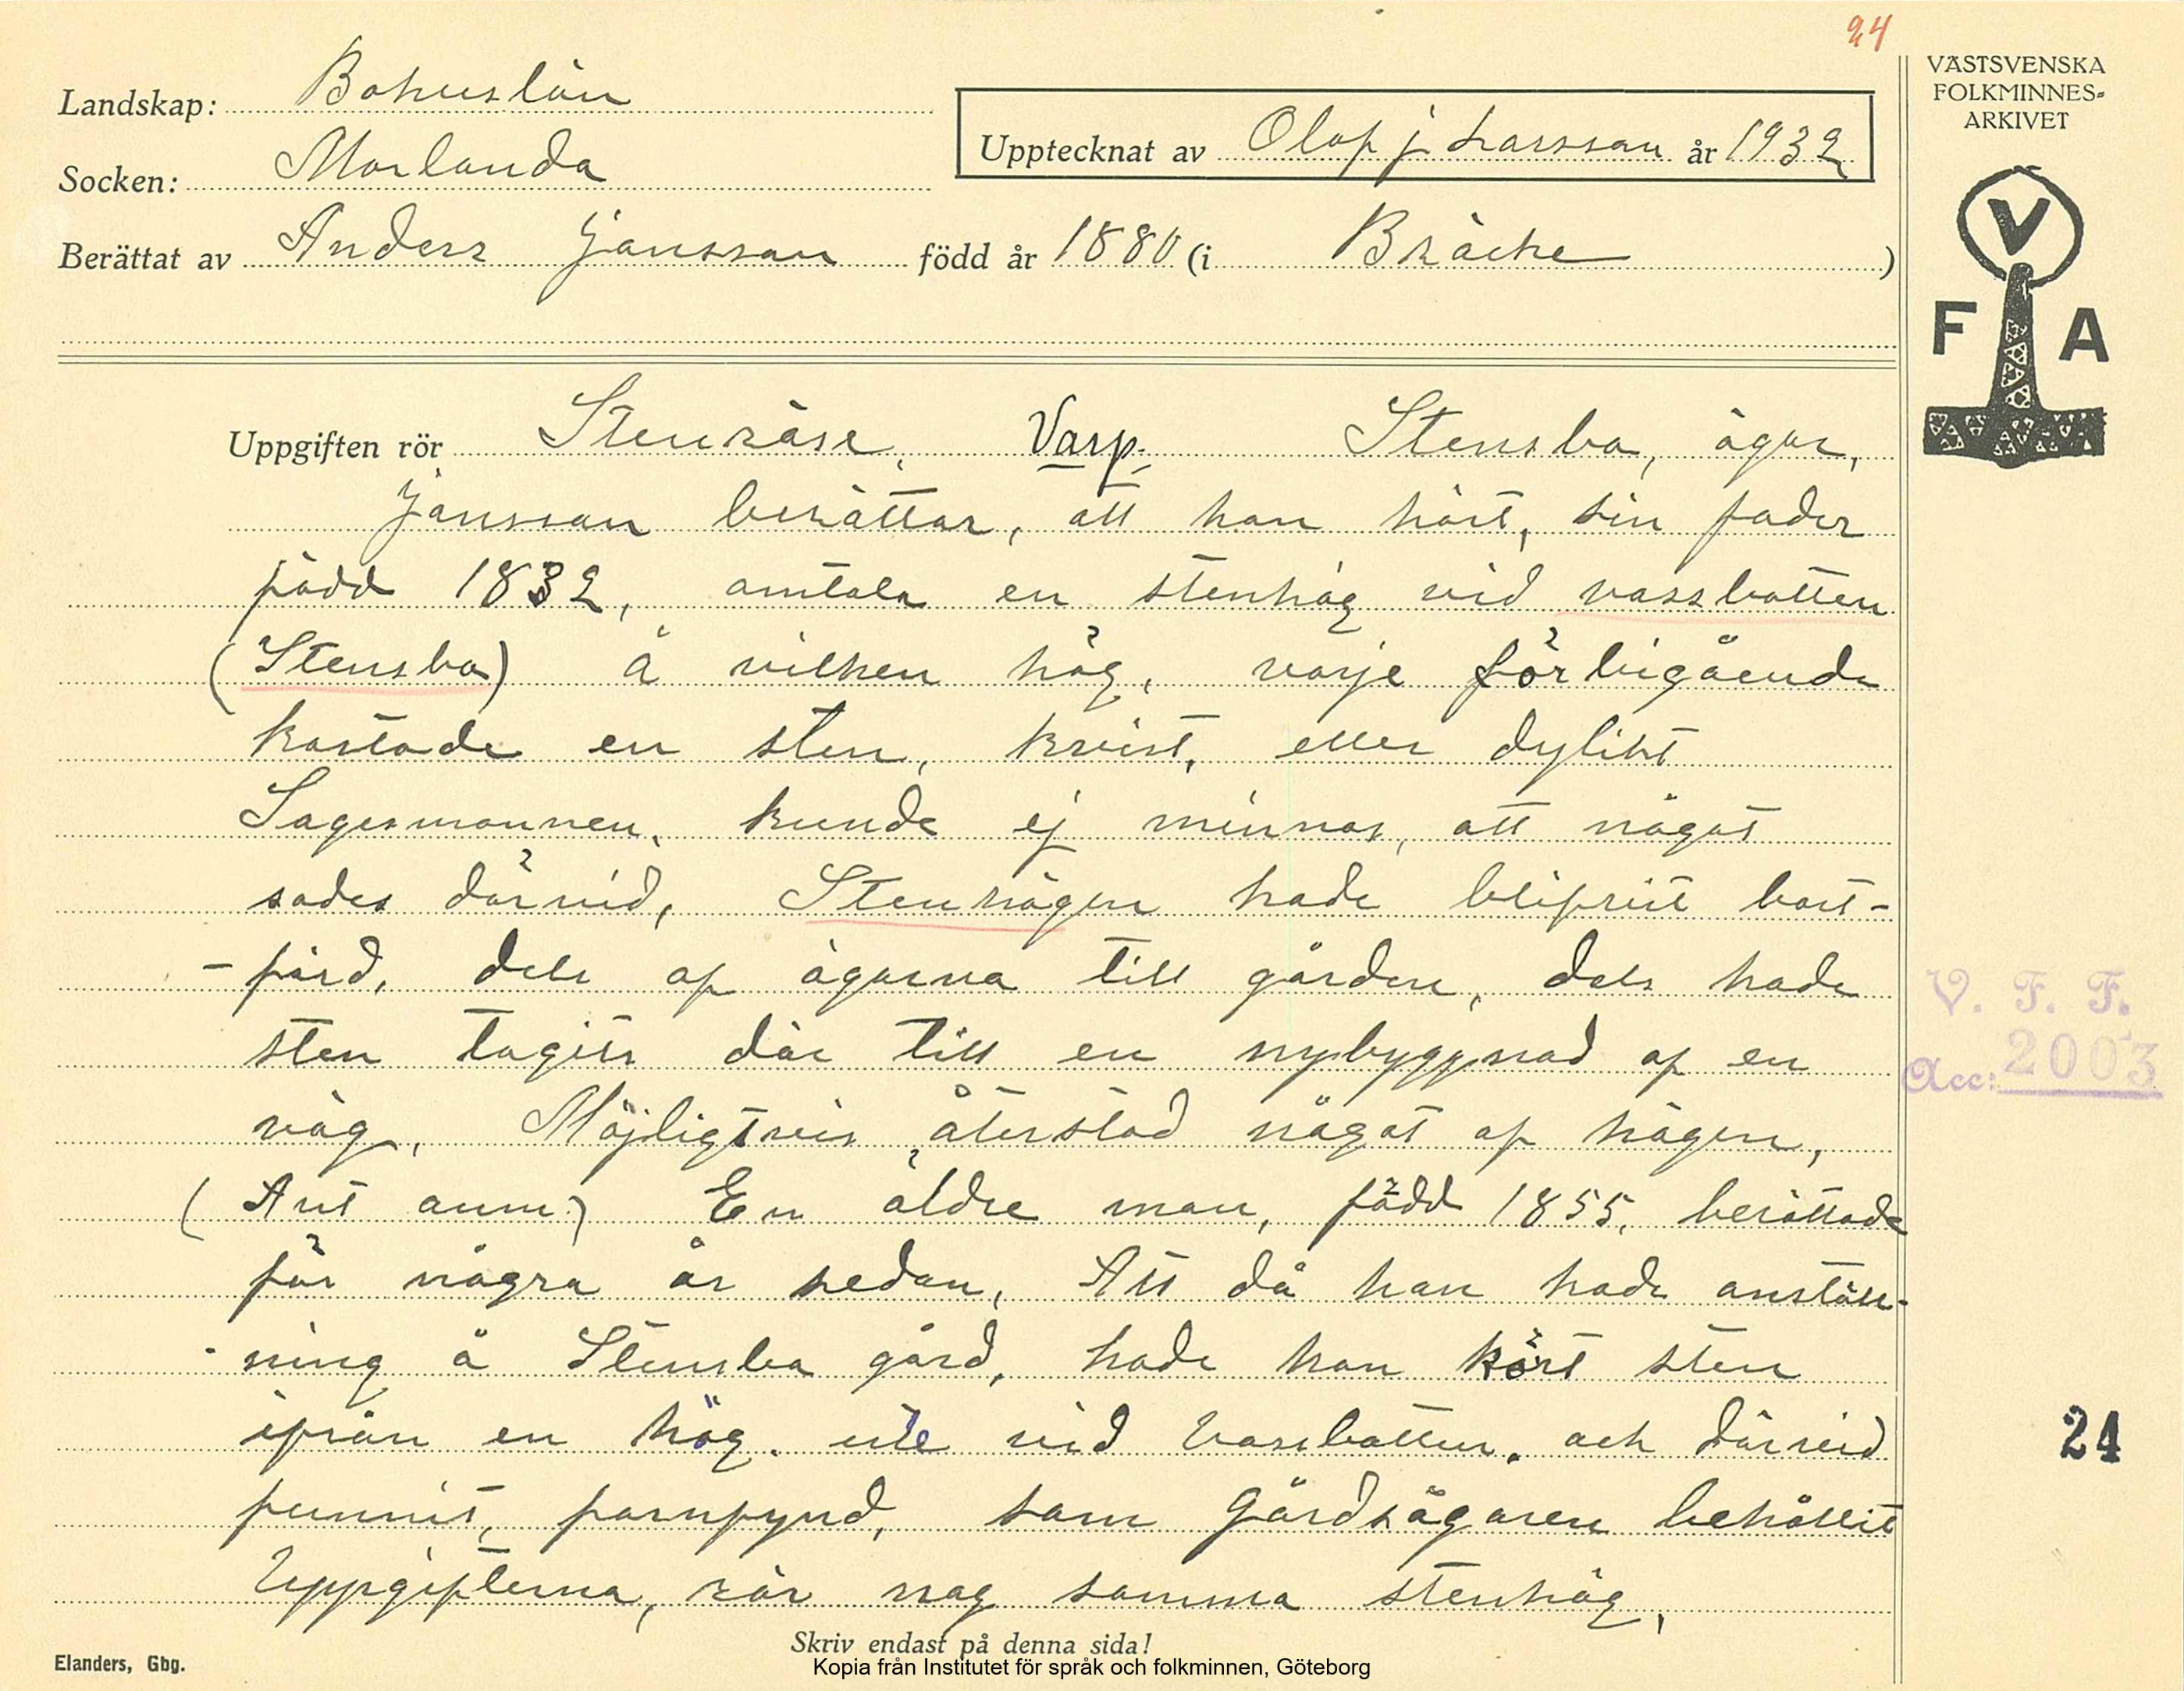 24
Landskap: Bohuslän
Socken: Morlanda
Upptecknat av Olof J. Larsson år 1932
Berättat av Anders Jansson född år 1880 (i Bräcke)
VÄSTSVENSKA
FOLKMINNES-
ARKIVET
V
F A
Uppgiften rör Stenröse, Varp. Stensbo, ägor,
Jansson berättar, att han hört, sin fader
född 1832, omtala en stenhög vid vassbotten
(Stensbo) å vilken hög, varje förbigående
kastade en sten, kvist, eller dylikt
Sagesmannen, kunde ej minnas, att något
sades därvid, Stenhögen hade blifvit bort-
-förd, dels af ägarna till gården, dels hade
sten tagits där till en nybyggnad af en
väg, Möjligtvis återstod något af högen,
(Ant anm.) En äldre man, född 1855, berättade
för några år sedan, Att då han hade anställ-
-ning å Stensbo gård, hade han kört sten
ifrån en hög. ute vid Vassbotten, och därvid
funnit, fornfynd, som Gårdsägaren behållit
Uppgifterna, rör nog samma stenhög,
V. F. F.
Acc: 2003
24
Skriv endast på denna sida!
Elanders, Gbg.
Kopia från Institutet för språk och folkminnen, Göteborg